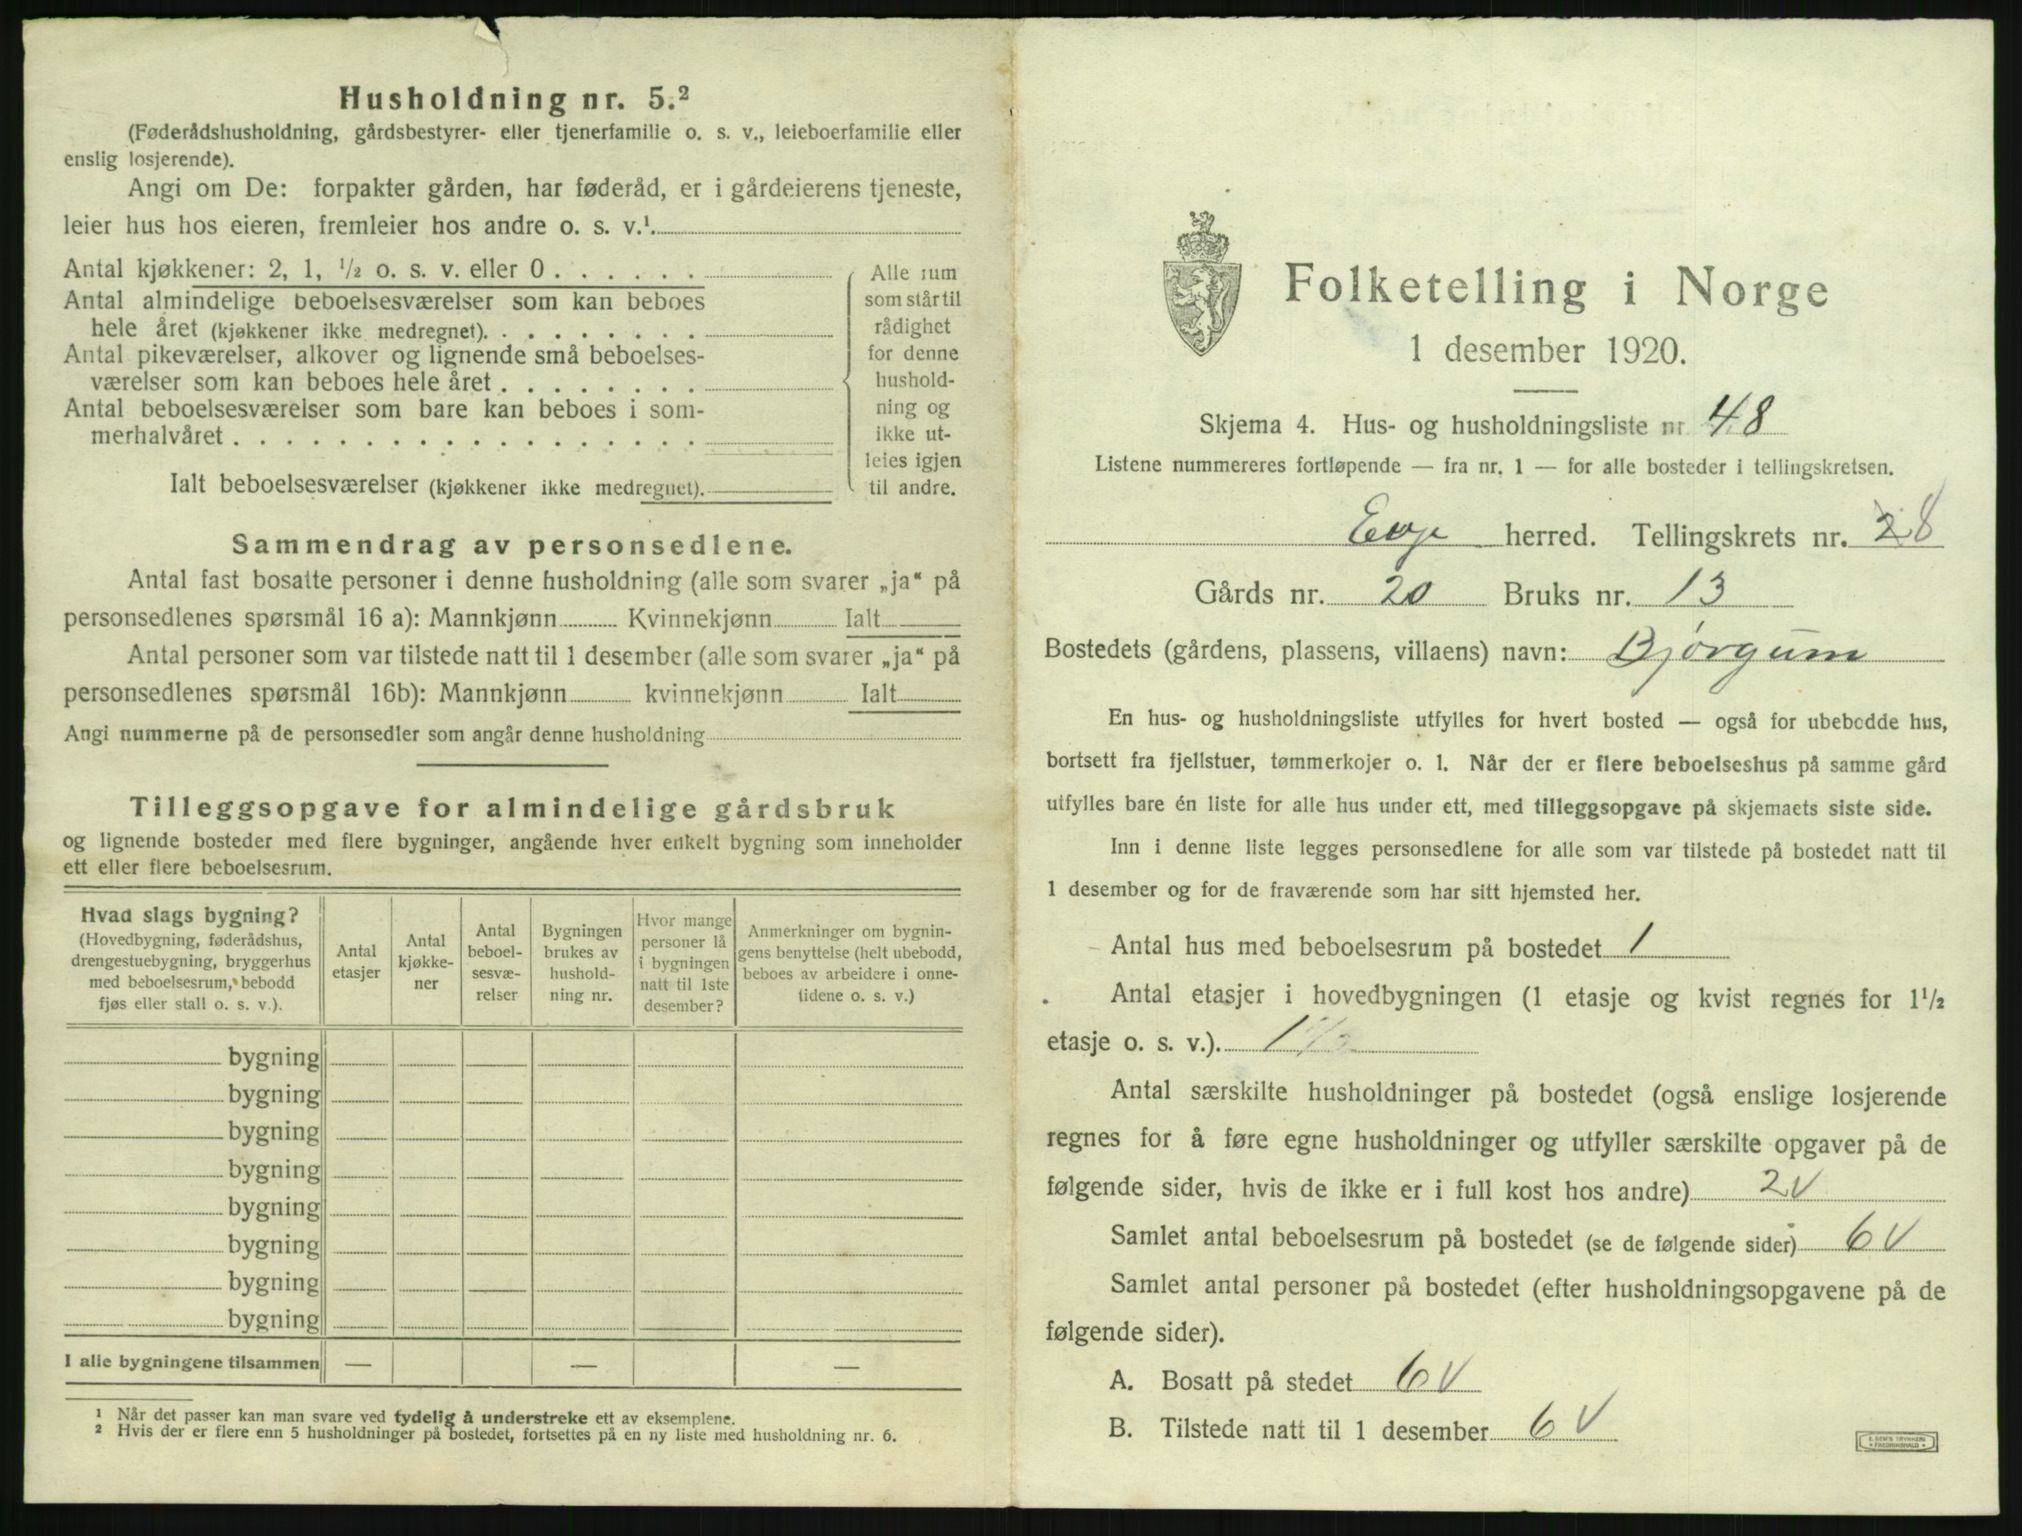 Husholdning nr. 5.²
(Føderådshusholdning, gårdsbestyrer- eller tjenerfamilie o. s. v., leieboerfamilie eller
enslig losjerende).
Angi om De: forpakter gården, har føderåd, er i gårdeierens tjeneste,
leier hus hos eieren, fremleier hos andre o. s. v.¹
Antal kjøkkener: 2, 1, ½ o. s. v. eller 0 . . . . . .
Antal almindelige beboelsesværelser som kan beboes
hele året (kjøkkener ikke medregnet). . . . . . . . .
Antal pikeværelser, alkover og lignende små beboelses-
værelser som kan beboes hele året . . . . . . . .
Antal beboelsesværelser som bare kan beboes i som-
merhalvåret . . . . . . . . . . . . . . . . . .
Ialt beboelsesværelser (kjøkkener ikke medregnet).
Alle rum
som står til
rådighet
for denne
hushold-
ning og
ikke ut-
leies igjen
til andre.
Sammendrag av personsedlene.
Antal fast bosatte personer i denne husholdning (alle som svarer „ja“ på
personsedlenes spørsmål 16 a): Mannkjønn Kvinnekjønn Ialt
Antal personer som var tilstede natt til 1 desember (alle som svarer „ja“ på
personsedlenes spørsmål 16b): Mannkjønn kvinnekjønn Ialt
Angi nummerne på de personsedler som angår denne husholdning
Tilleggsopgave for almindelige gårdsbruk
og lignende bosteder med flere bygninger, angående hver enkelt bygning som inneholder
ett eller flere beboelsesrum.
Hvad slags bygning?
(Hovedbygning, føderådshus,
drengestuebygning, bryggerhus
med beboelsesrum, bebodd
fjøs eller stall o. s. v.).
Antal
etasjer
Antal
kjøkke-
ner
Antal
beboel-
sesvæ-
relser
Bygningen
brukes av
hushold-
ning nr.
Hvor mange
personer lå
i bygningen
natt til 1ste
desember?
Anmerkninger om bygnin-
gens benyttelse (helt ubebodd,
beboes av arbeidere i onne-
tidene o. s. v.)
bygning
bygning
bygning
bygning
bygning
bygning
bygning
bygning
I alle bygningene tilsammen — — —
¹ Når det passer kan man svare ved tydelig å understreke ett av eksemplene.
² Hvis der er flere enn 5 husholdninger på bostedet, fortsettes på en ny liste med husholdning nr. 6.
Folketelling i Norge
1 desember 1920.
Skjema 4. Hus- og husholdningsliste nr. 48
Listene nummereres fortløpende — fra nr. 1 — for alle bosteder i tellingskretsen.
Evje herred. Tellingskrets nr. 2 8
Gårds nr. 20 Bruks nr. 13
Bostedets (gårdens, plassens, villaens) navn: Bjørgum
En hus- og husholdningsliste utfylles for hvert bosted — også for ubebodde hus,
bortsett fra fjellstuer, tømmerkojer o. l. Når der er flere beboelseshus på samme gård
utfylles bare én liste for alle hus under ett, med tilleggsopgave på skjemaets siste side.
Inn i denne liste legges personsedlene for alle som var tilstede på bostedet natt til
1 desember og for de fraværende som har sitt hjemsted her.
Antal hus med beboelsesrum på bostedet 1
Antal etasjer i hovedbygningen (1 etasje og kvist regnes for 1½
etasje o. s. v.). 1 ½
Antal særskilte husholdninger på bostedet (også enslige losjerende
regnes for å føre egne husholdninger og utfyller særskilte opgaver på de
følgende sider, hvis de ikke er i full kost hos andre) 2 V
Samlet antal beboelsesrum på bostedet (se de følgende sider) 6 V
Samlet antal personer på bostedet (efter husholdningsopgavene på de
følgende sider).
A. Bosatt på stedet 6 V
B. Tilstede natt til 1 desember 6 V